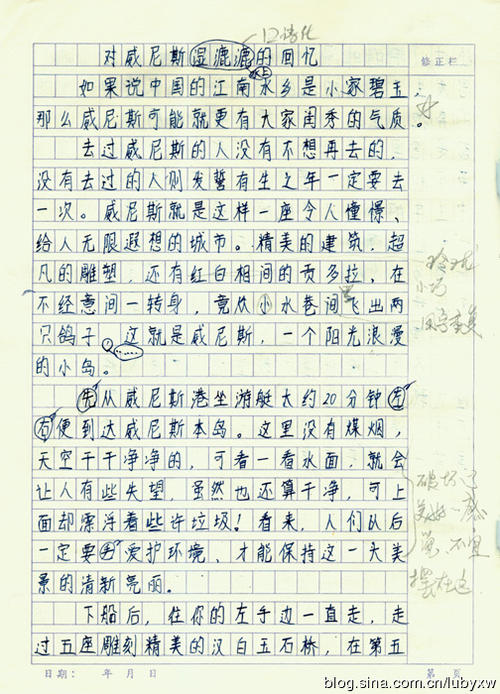 口语化
对威尼斯湿漉漉的回忆
修正栏
如果说中国的江南水乡是小家碧玉，
那么威尼斯可能就更有大家闺秀的气质。
去过威尼斯的人没有不想再去的，
没有去过的人则发誓有生之年一定要去
一次。威尼斯就是这样一座令人憧憬、
给人无限遐想的城市。精美的建筑，超
凡的雕塑，还有红白相间的贡多拉，在
不经意间一转身，竟从小水巷间飞出两
只鸽子，这就是威尼斯，一个阳光浪漫
的小岛。
玲珑
小巧
先从威尼斯港坐游艇大约20分钟左
右便到达威尼斯本岛。这里没有煤烟，
天空干干净净的，可看一看水面，就会
让人有些失望，虽然也还算干净，可上
面却漂浮着些许垃圾！看来，人们以后
一定要爱护环境、才能保持这一大美
景的清新亮丽。
破坏了
美好感
觉，不宜
摆在这
下船后，往你的左手边一直走，走
过五座雕刻精美的汉白玉石桥，在第五
日期： 年 月 日
第 页
blog.sina.com.cn/lubyxw